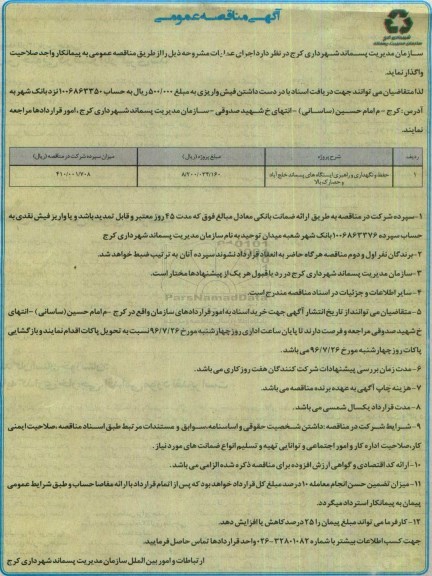 آگهی مناقصه عمومی
سازمان مدیریت پسماند شهرداری کرج در نظر دارد اجرای عملیات مشروحه ذیل را از طریق مناقصه عمومی به پیمانکار واجد صلاحیت
واگذار نماید.
لذا متقاضیان می توانند جهت دریافت اسناد با در دست داشتن فیش واریزی به مبلغ ۵۰۰/۰۰۰ ریال به حساب ۱۰۰۶۸۶۳۳۵۰ نزد بانک شهر به
آدرس: کرج - م امام حسین (ساسانی) - انتهای خ شهید صدوقی - سازمان مدیریت پسماند شهرداری کرج، امور قراردادها مراجعه
نمایند.
ردیف شرح پروژه مبلغ پروژه (ریال) میزان سپرده شرکت در مناقصه (ریال)
۱ حفظ و نگهداری و راهبری ایستگاه های پسماند خلج آباد ۸/۲۰۰/۰۳۴/۱۶۰ ۴۱۰/۰۰۱/۷۰۸
و حصارک بالا
۱- سپرده شرکت در مناقصه به طریق ارائه ضمانت بانکی معادل مبالغ فوق که مدت ۴۵ روز معتبر و قابل تمدید باشد و یا واریز فیش نقدی به
حساب سپرده ۱۰۰۶۸۶۳۳۷۶ بانک شهر شعبه میدان توحید به نام سازمان مدیریت پسماند شهرداری کرج
۲- برندگان نفر اول و دوم مناقصه هرگاه حاضر به انعقاد قرارداد نشوند سپرده آنان به ترتیب ضبط خواهد شد.
۳- سازمان مدیریت پسماند شهرداری کرج در رد یا قبول هر یک از پیشنهادها مختار است.
۴- سایر اطلاعات و جزئیات در اسناد مناقصه مندرج است.
ParsNamadData
۵- متقاضیان می توانند از تاریخ انتشار آگهی جهت خرید اسناد به امور قراردادهای سازمان واقع در کرج - م امام حسین (ساسانی) - انتهای
خ شهید صدوقی مراجعه و فرصت دارند تا پایان ساعت اداری روز چهارشنبه مورخ ۹۶/۷/۲۶ نسبت به تحویل پاکات اقدام نمایند و بازگشایی
پاکات روز چهارشنبه مورخ ۹۶/۷/۲۶ می باشد.
۶- مدت زمان بررسی پیشنهادات شرکت کنندگان هفت روز کاری می باشد.
۷- هزینه چاپ آگهی به عهده برنده مناقصه می باشد.
۸- مدت قرارداد یکسال شمسی می باشد.
۹- شرایط شرکت در مناقصه: داشتن شخصیت حقوقی و اساسنامه، سوابق و مستندات مرتبط طبق اسناد مناقصه، صلاحیت ایمنی
کار، صلاحیت اداره کار و امور اجتماعی و توانایی تهیه و تسلیم انواع ضمانت های مورد نیاز.
۱۰- ارائه کد اقتصادی و گواهی ارزش افزوده برای مناقصه ذکر شده الزامی می باشد.
۱۱- میزان تضمین حسن انجام معامله ۱۰ درصد مبلغ کل قرارداد خواهد بود که پس از اتمام قرارداد با ارائه مفاصا حساب و طبق شرایط عمومی
پیمان به پیمانکار استرداد میگردد.
۱۲- کارفرما می تواند مبلغ پیمان را ۲۵ درصد کاهش یا افزایش دهد.
جهت کسب اطلاعات بیشتر با شماره ۳۲۸۰۱۰۸۲-۰۲۶ واحد قراردادها تماس حاصل فرمایید.
ارتباطات و امور بین الملل سازمان مدیریت پسماند شهرداری کرج